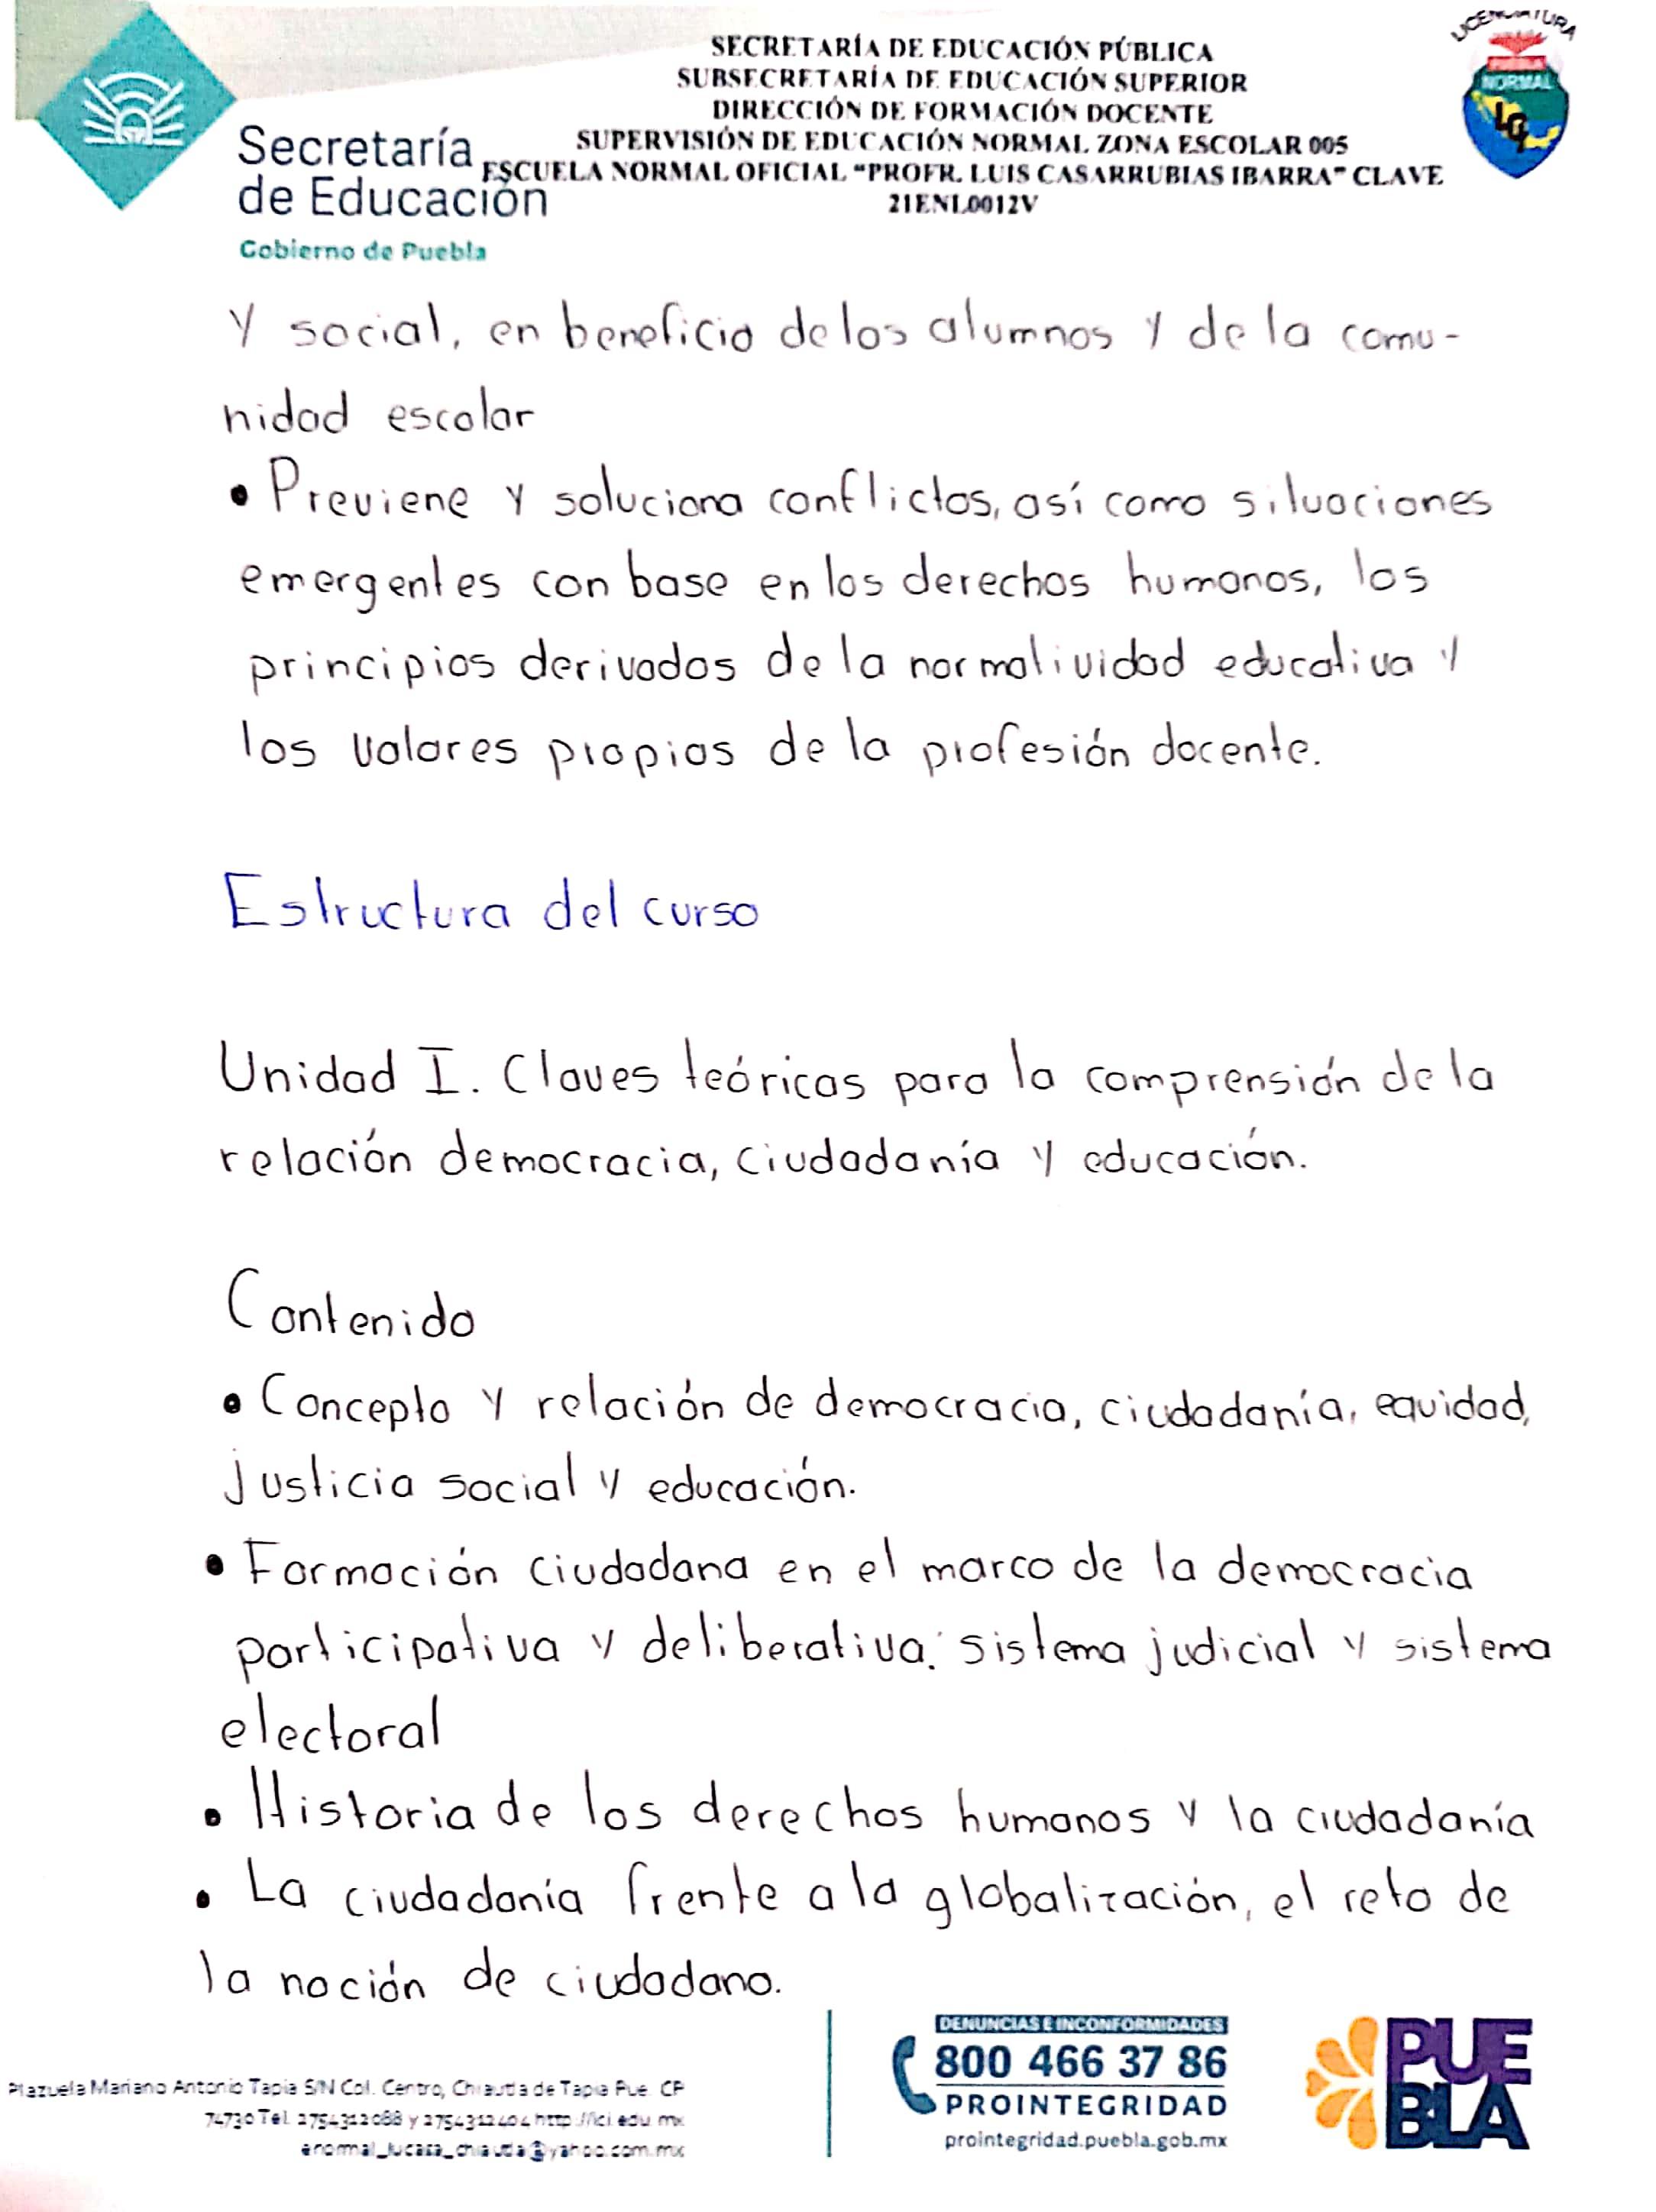 SECRETARÍA DE EDUCACIÓN PÚBLICA
SUBSECRETARÍA DE EDUCACIÓN SUPERIOR
DIRECCIÓN DE FORMACIÓN DOCENTE
SUPERVISIÓN DE EDUCACIÓN NORMAL ZONA ESCOLAR 005
ESCUELA NORMAL OFICIAL "PROFR. LUIS CASARRUBIAS IBARRA" CLAVE
21ENL0012V
Secretaría
de Educación
Gobierno de Puebla
LICENCIATURA
NORMAL
y social, en beneficio de los alumnos y de la comu-
nidad escolar
• Previene y soluciona conflictos, así como situaciones
emergentes con base en los derechos humanos, los
principios derivados de la normatividad educativa y
los valores propios de la profesión docente.
Estructura del curso
Unidad I. Claves teóricas para la comprensión de la
relación democracia, ciudadanía y educación.
Contenido
• Concepto y relación de democracia, ciudadanía, equidad,
justicia social y educación.
• Formación ciudadana en el marco de la democracia
participativa y deliberativa: sistema judicial y sistema
electoral
• Historia de los derechos humanos y la ciudadanía
• La ciudadanía frente a la globalización, el reto de
la noción de ciudadano.
Plazuela Mariano Antonio Tapia S/N Col. Centro, Chiautla de Tapia Pue. CP
74730 Tel. 2754312088 y 2754312404 http://lci.edu.mx
enormal_lucasa_chiautla@yahoo.com.mx
DENUNCIAS E INCONFORMIDADES
800 466 37 86
PROINTEGRIDAD
prointegridad.puebla.gob.mx
PUE
BLA